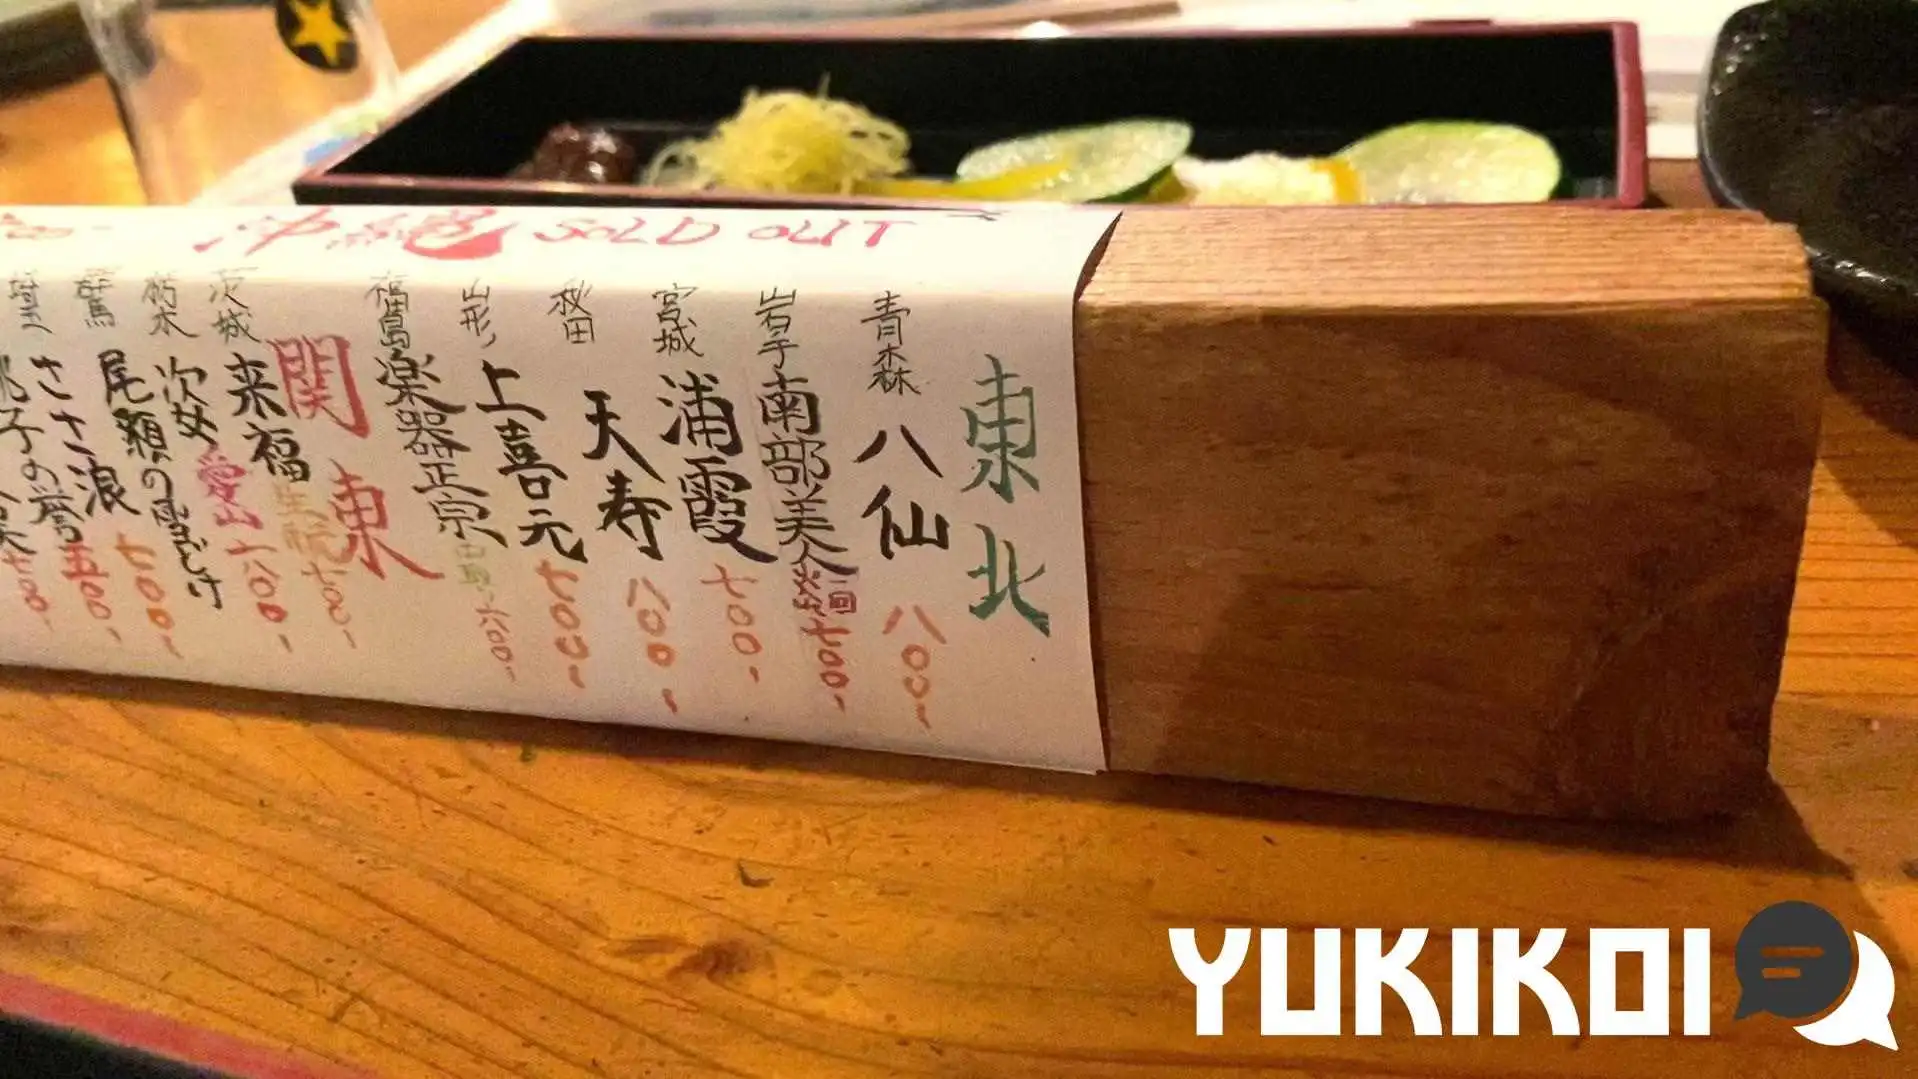 沖縄 SOLD OUT
東北
青森 八仙 八〇〇-
岩手 南部美人 二回 七〇〇-
宮城 浦霞 七〇〇-
秋田 天寿 八〇〇-
山形 上喜元 七〇〇-
福島 楽器正宗 六〇〇-
関東
茨城 来福 生酛 七〇〇-
次女 愛山 六〇〇-
栃木 尾瀬の雪どけ
群馬 七〇〇-
埼玉 ささ浪 五〇〇-
七〇〇-
YUKIKOI